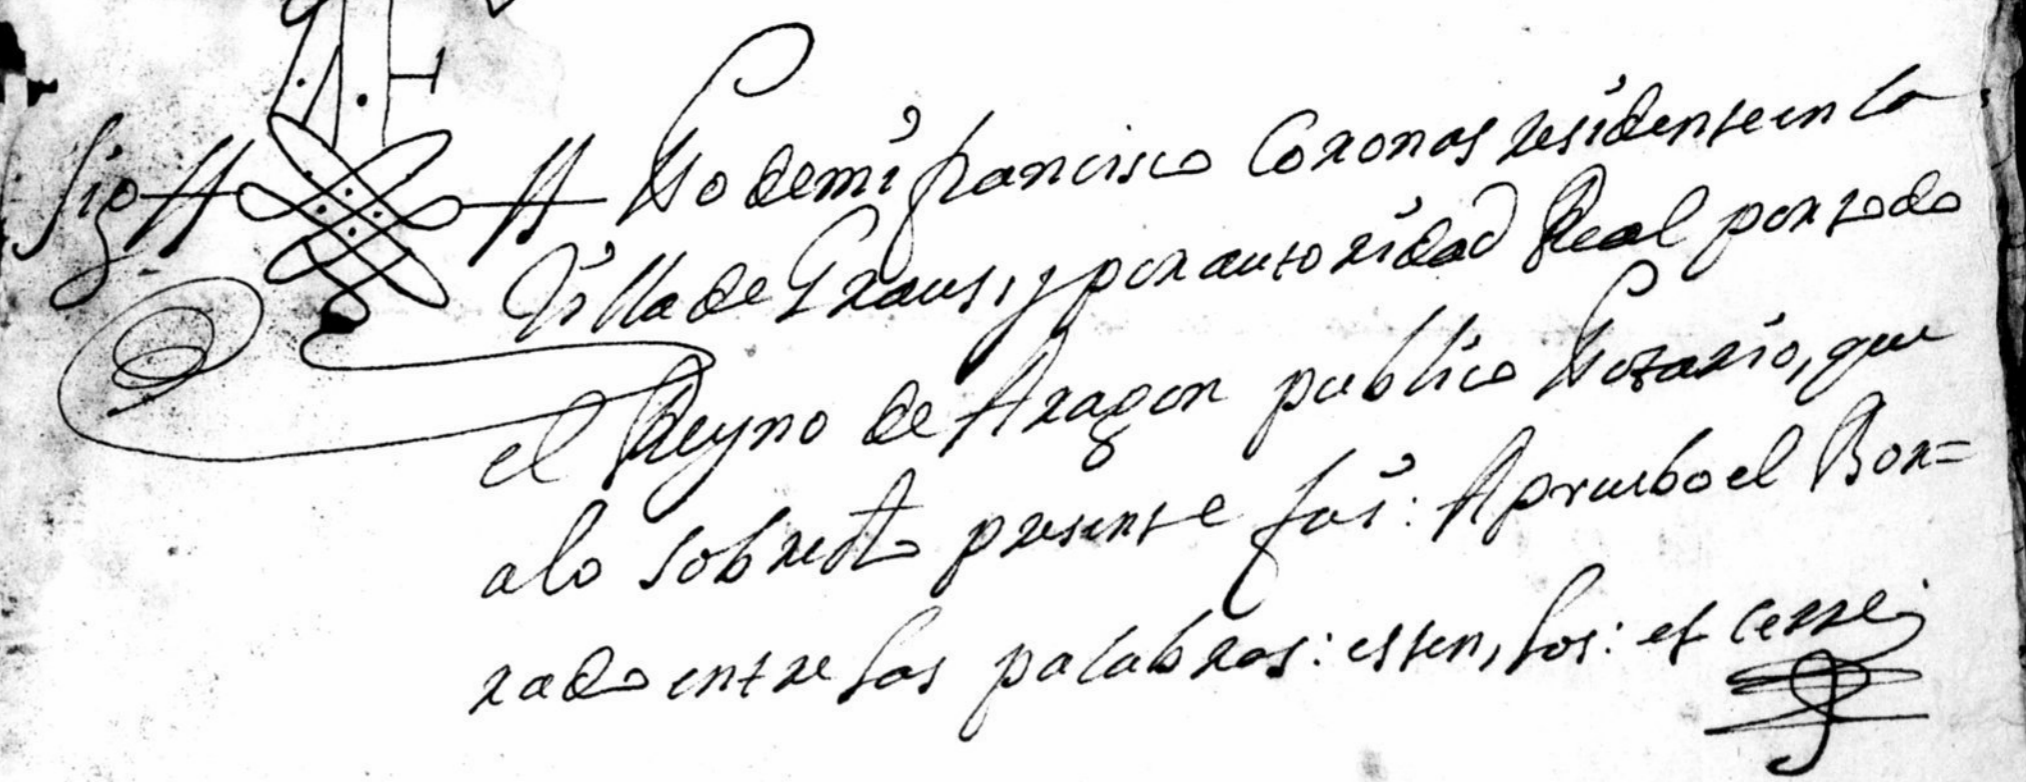 Sig No de mi francisco Coronas residente en la
Villa de Graus, y por autoridad Real por todo
el Reyno de Aragon publico Notario, que
a lo sobred.to presente fui: Apruebo el Bor=
rado entre las palabras: esten, los: et cerre